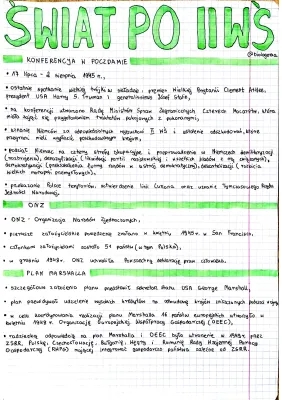 ŚWIAT PO II WŚ
@biologiczka
KONFERENCJA W POCZDAMIE
• 17 lipca - 2 sierpnia 1945 r.,
• ostatnie spotkanie wielkiej trójki w składzie : premier Wielkiej Brytanii Clement Attlee,
prezydent USA Harry S. Truman i generalissimus Józef Stalin,
• na konferencji utworzono Radę Ministrów Spraw Zagranicznych Czterech Mocarstw, która
miała zająć się przygotowaniem traktatów pokojowych z pokonanymi,
• uznanie Niemców za odpowiedzialnych wybuchu II WŚ i ustalenie odszkodowań, które
• podział Niemiec na cztery strefy okupacyjne i przeprowadzenie w Niemczech demilitaryzacji
(rozbrojenia), denazyfikacji (likwidacji partii nazistowskiej i wszelkich śladów z nią związanych),
demokratyzacji (przekształcenia ustroju państwa w ustrój demokratyczny), dekartelizacji (rozbicia
wielkich koncernów przemysłowych),
• przekazanie Polsce terytoriów, zatwierdzenie linii Curzona oraz uznanie Tymczasowego Rządu
Jedności Narodowej.
ONZ
• ONZ - Organizacja Narodów Zjednoczonych,
• pierwsze założycielskie posiedzenie zwołano w kwietniu 1945 r. w San Francisco,
• członkami założycielskimi zostało 51 państw (w tym Polska),
• w grudniu 1948 r. ONZ uchwaliła Powszechną deklarację praw człowieka.
PLAN MARSHALLA
• szczegółowe założenia planu przedstawił sekretarz stanu USA George Marshall,
• plan przewidywał udzielenie wysokich kredytów na odbudowę krajów zniszczonych podczas wojny,
• w celu koordynowania realizacji planu Marshalla 16 państw europejskich utworzyło w
kwietniu 1948 r. Organizację Europejskiej Współpracy Gospodarczej (OEEC),
• radziecką odpowiedzią na plan Marshalla i OEEC było utworzenie w 1949 r. przez
ZSRR, Polskę, Czechosłowację, Bułgarię, Węgry i Rumunię Rady Wzajemnej Pomocy
Gospodarczej (RWPG) mającej integrować gospodarczo państwa zależne od ZSRR.